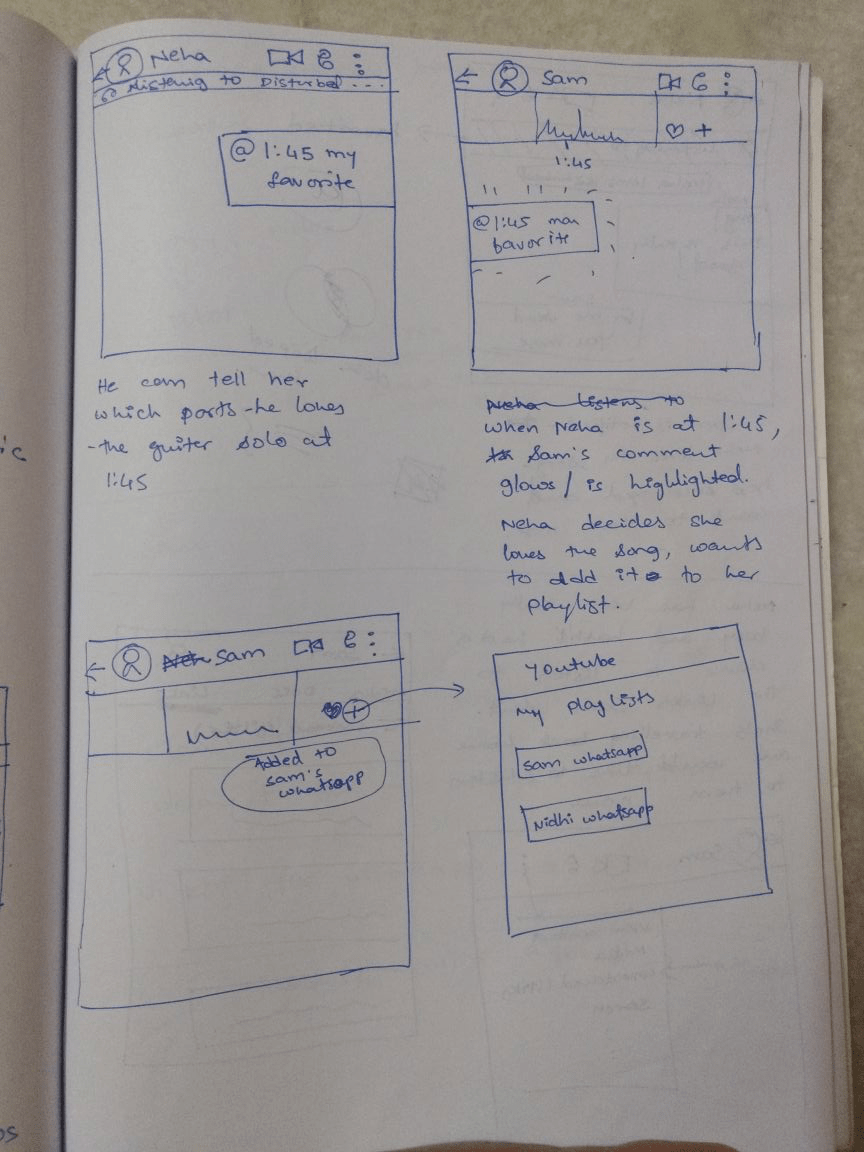 Neha
Listenig to Disturbed ...
@ 1:45 my
favorite
He can tell her
which parts he loves
the guiter solo at
1:45
Sam
1:45
@1:45 man
favorite
Neha listens to
when Neha is at 1:45,
Sam's comment
glows / is highlighted.
Neha decides she
loves the song, wants
to add it to her
playlist.
Sam
Added to
Sam's
whatsapp
Youtube
My playlists
Sam whatsapp
Nidhi whatsapp
ic
os